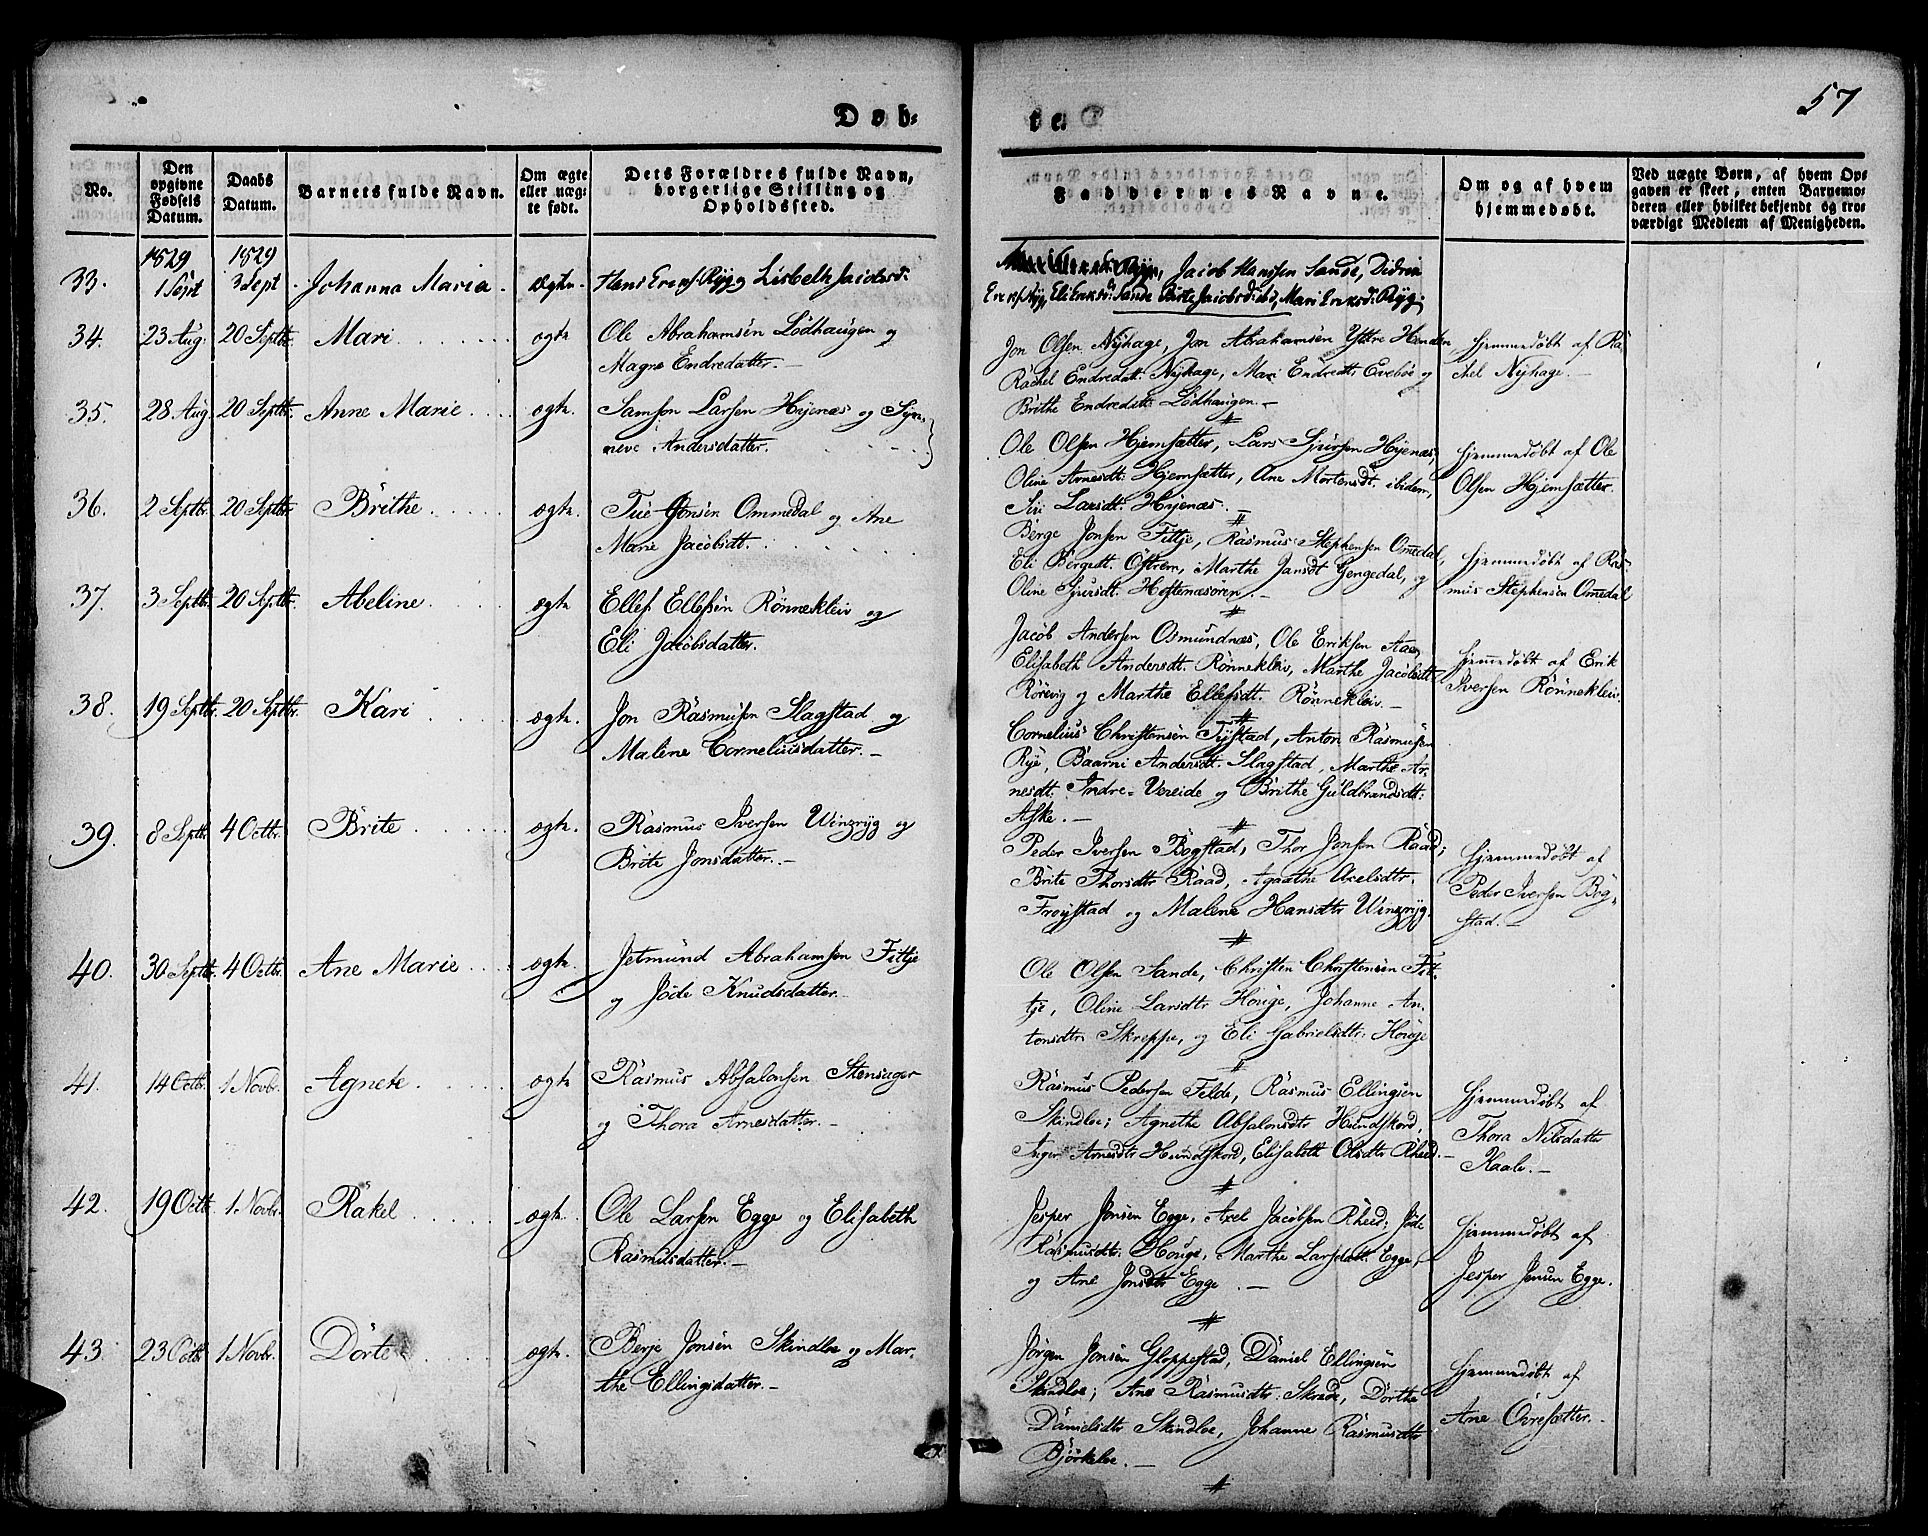 57
Døb-
te.
No.
Den opgivne Fødsels Datum.
Daabs Datum.
Barnets fulde Navn.
Om ægte eller uægte født.
Dets Forældres fulde Navn, borgerlige Stilling og Opholdssted.
Faddernes Navne.
Om og af hvem hjemmedøbt.
Ved uægte Børn, af hvem Opgaven er skeet, enten Barnemoderen eller hvilket bekjendt og troværdigt Medlem af Menigheden.
1829 1829
33. 1 Sept 3 Sept Johanna Maria ægte. Hans Erens. Ryg og Lisbeth Jacobsd:
Jacob Hanssen Sande, Didrik
Erens. Ryg, Eli Eriksd: Sande Birte Jacobsd: ibid, Mari Eriksd: Ryg.
34. 23 Aug: 20 Septbr. Mari ægte Ole Abrahamsen Lødhaugen og
Magne Endredatter.
Jon Olsen Nyhage, Jon Abrahamsen Yttre Henden,
Rachel Endredatt. Nyhage, Mari Endredtr Evebøe og
Brithe Endredatt. Lødhaugen.
Hjemmedøbt af Ra-
chel Nyhage.
35. 28 Aug 20 Septbr. Anne Marie ægte Samson Larsen Hyenæs og Syn-
neve Andersdatter.
Ole Olsen Hjemsætter, Lars Sjursen Hyenæs,
Oline Arnesdt: Hjemsætter, Ane Mortensdt. ibidem,
Siri Larsdt. Hyenæs.
Hjemmedøbt af Ole
Olsen Hjemsætter.
36. 2 Septbr. 20 Septbr. Brithe ægte. Tue Jonsen Ommedal og Ane
Marie Jacobsdt.
Berge Jonsen Fittje, Rasmus Stephensen Omedal,
Eli Bergett. Østrem, Marthe Jansdt Gengedal, og
Oline Sjursdt. Hestenæsøren.
Hjemmedøbt af Ras-
mus Stephensen Omedal
37. 3 Septbr. 20 Septbr. Abeline. ægte. Ellef Ellefsen Rønnekleiv og
Eli Jacobsdatter.
Jacob Andersen Osmundnæs, Ole Eriksen Aae,
Elisabeth Andersdt. Rønnekleiv, Marthe Jacobsdt.
Rørevig og Marthe Ellefsdt. Rønnekleiv.
Hjemmedøbt af Erik
Iversen Rønnekleiv.
38. 19 Septbr. 20 Septbr. Kari ægte. Jon Rasmusen Slagstad og
Malene Corneliusdatter.
Cornelius Christensen Tystad, Anton Rasmusen
Rye, Baarni Andersdt. Slagstad, Marthe Ar-
nesdt. Indre-Vereide og Brithe Guldbrandsdt:
Aske.
39. 8 Septbr. 4 Octbr. Brite ægte. Rasmus Iversen Wingryg og
Brite Jonsdatter.
Peder Iversen Bogstad, Thor Jonsen Raad;
Brite Thorsdtr Raad, Agaathe Axelsdtr.
Frøystad og Malene Hansdtr Wingryg.
Hjemmedøbt af
Peder Iversen Bog-
stad.
40. 30 Septbr. 4 Octbr. Ane Marie ægte. Jetmund Abrahamsen Fittje
og Jøde Knudsdatter.
Ole Olsen Sande, Christen Christensen Fit-
tje, Oline Larsdtr Houge, Johanne An-
tonsdtr Skreppe, og Eli Gabrielsdtr: Houge
41. 14 Octbr. 1 Novbr. Agnete ægte Rasmus Absalonsen Stensager
og Thora Arnesdatter.
Rasmus Pedersen Felde, Rasmus Ellingsen
Skindloe; Agnethe Absalonsdt Hundskord,
Inger Arnesdtr Hundskord, Elisabeth Olsdtr Rheed.
Hjemmedøbt af
Thora Nilsdatter
Kaale.
42. 19 Octbr. 1 Novbr. Rakel ægte. Ole Larsen Egge og Elisabeth
Rasmusdatter.
Jesper Jensen Egge, Axel Jacobsen Rheed; Jøde
Rasmusdtr. Houge, Marthe Larsdatt. Egge,
og Ane Jonsdtr Egge.
Hjemmedøbt af
Jesper Jensen Egge.
43. 23 Octbr. 1 Novbr. Dorte ægte. Berje Jonsen Skindloe og Mar-
the Ellingsdatter.
Jørgen Jonsen Gloppestad, Daniel Ellingsen
Skindloe; Ane Rasmusdtr. Skrede, Dorthe
Danielsdtr Skindloe, Johanne Rasmusdtr
Bjørkeloe.
Hjemmedøbt af
Ane Øvresætter.